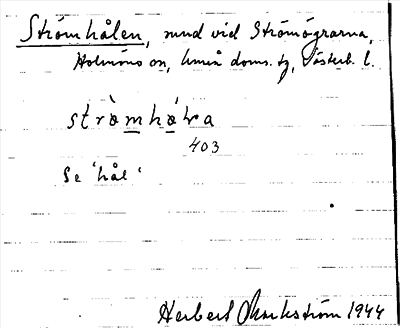 Strömhålen, sund vid Strömögrarna,
Holmöns sn, Umeå doms. tg, Västerb. l.
strömhåla
403
Se 'hål'
Herbert Markström 1944